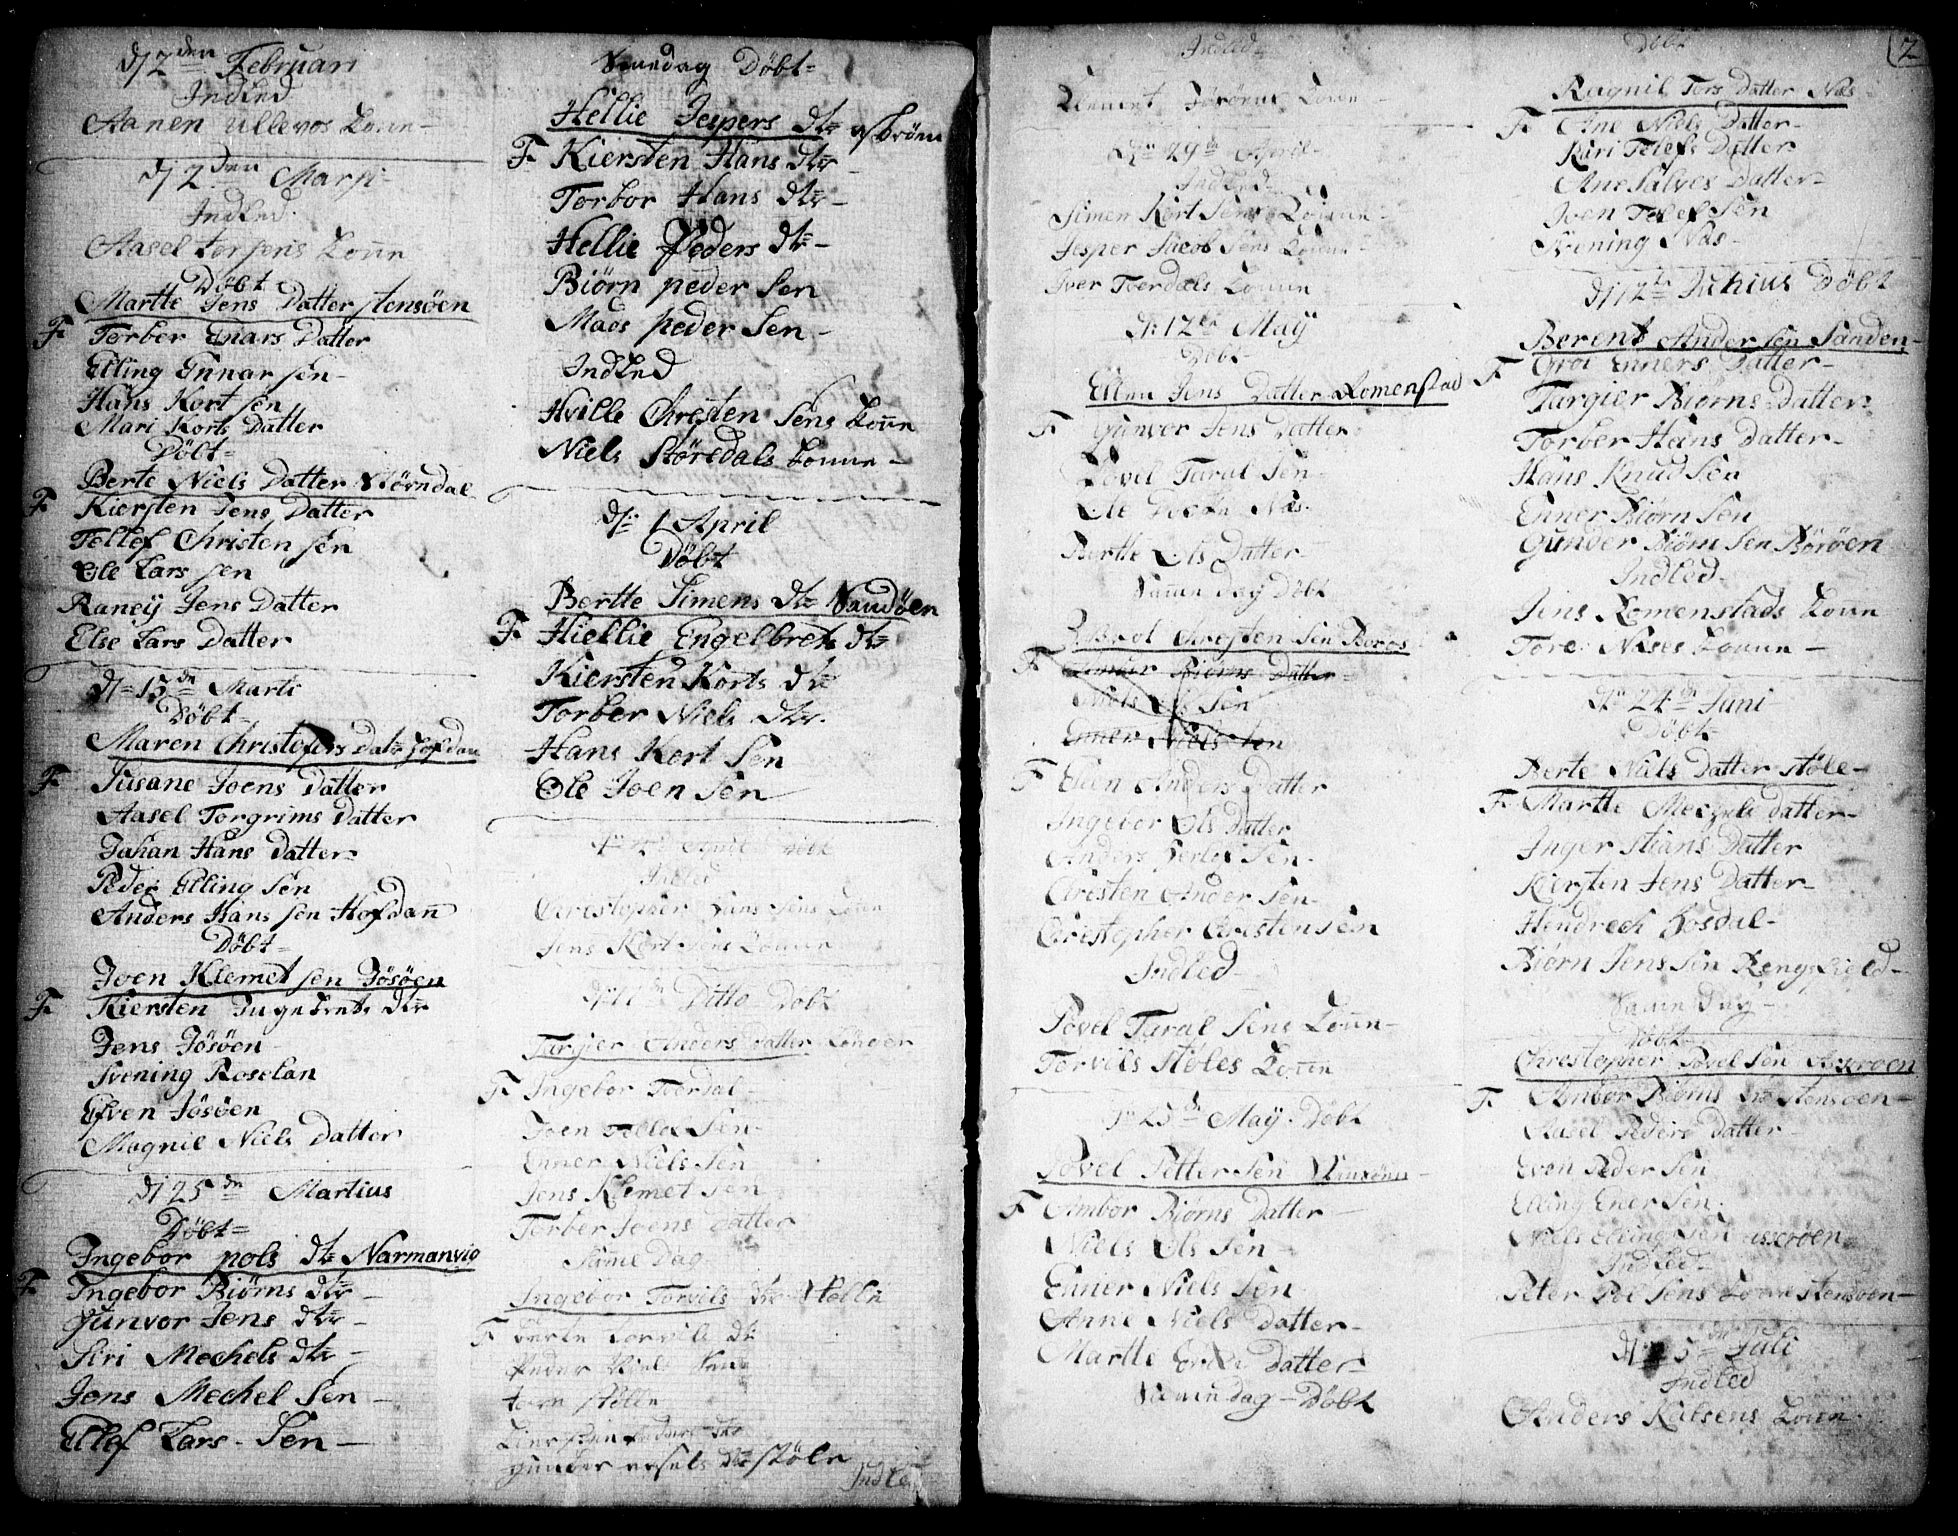 d/ 2den Februari
Indled
Aanen Ullevos Konn
d/ 2den Marsi
Indled
Aasel Torsens Konn
Döbt
Martte Jens Datter Stensöen
F. Torber Enars Datter
Elling Ennar sen
Hans Kort sen
Mari Korts Datter
Döbt
Berte Niels Datter Störndal
F. Kiersten Jens Datter
Tellef Christen sen
Ole Lars sen
Raney Jens Datter
Else Lars Datter
d/ 15de Marti
Döbt
Maren Christofers Datr Hofdan
F. Susane Joens Datter
Aasel Torgrims Datter
Johan Hans Datter
Peder Elling sen
Anders Hans sen Hofdan
Döbt
Joen Klemet sen Jösöen
F. Kiersten Ingebrets dtr
Jens Jösöen
Svening Roselan
Efven Jösöen
Magnil Niels Datter
d/ 25de Martius
Döbt
Ingebor Pols dtr Narmanvig
F. Ingebor Biörns dtr
Gunvor Jens dtr
Siri Mechels dtr
Jens Mechel Sen
Ellef Lars Sen
Samedag Döbt
Hellie Jespers dtr
F. Kiersten Hans dtr
Torbor Hans dtr
Hellie Peders dtr
Biörn peder Sen
Mads peder Sen
Indled
Hville Chresten Sens Konn
Niels Störedals Konn
d/: 1 April
Döbt
Bertte Simens dtr Sandöen
F. Hiellie Engelbrets dtr
Kiersten Korts dtr
Torber Niels dtr
Hans Kort Sen
Ole Joen Sen
Indled
Chrestopher Hans Sens Konn
Jens Kort Sens Konn
Ditto Döbt
Targier Anders Datter
F. Ingebor Tordal
Joen Tellef Sen
Enner Niels Sen
Jens Klemet Sen
Torber Joens Datter
Same Dag
Ingebor Torvils dtr Stölle
F. Berte Torvils dtr
Peder Niels Sen
gunder dtr Stöle
Indle
Indled
Klement Konn
29de April
Indled
Simen Kort Sens Konn
Jesper Jacob Sens Konn
Iver Tverdals Konn
d: 12te May
Döbt
Ellen Jens Datter Lomenstad
F. Gunvor Jens Datter
Povel Taral Sen
Ole Næs
Bertte Ols Datter
Samme Day Döbt
Chresten Sen Boros
F. Biörns Datter
Niels Ols Sen
Enner Niels Sen
F. Elen Anders Datter
Ingebor Ols Datter
Anders Sen
Chresten Ander Sen
Christopher Chresten Sen
Indled
Povel Taral Sens Konn
Torvils Stöles Konn
d: 25de May Döbt
Povel Petter Sen
F. Ambor Biörns Datter
Niels Ols Sen
Enner Niels Sen
Anne Niels Datter
Martte Datter
Samme dag Döbt
Döbt
2
Ragnil Tors Datter Næs
F. Ane Niels Datter
Kari Telefs Datter
Ane Salves Datter
Joen Telef Sen
Svening Næs
d/ 12te Junius Döbt
Berent Ander Sen Sanden
F. Groi Enners Datter
Targier Biörns Datter
Torber Hans Datter
Hans Knud Sen
Enner Biörn Sen
Gunder Biörn Sen Böröen
Indled
Jens Lomenstads Konn
Tore Næses Konn
d: 24de Juni
Döbt
Berte Niels Datter Stöle
F. Martte Mechels Datter
Inger Stians Datter
Kiersten Jens Datter
Hendrech Hosdal
Biörn Jens Sen Rengsfield
Same Dag
Döbt
Chrestopher Povel Sen Askeröen
F. Ambor Biörns dtr Stensöen
Aasel Peders Datter
Even Peder Sen
Elling Ener Sen
Niels Elling Sen Askröen
Indled
Peter Poel Sens Konn Stensöen
d: 5de Juli
Indled
Anders Kalsens Konn